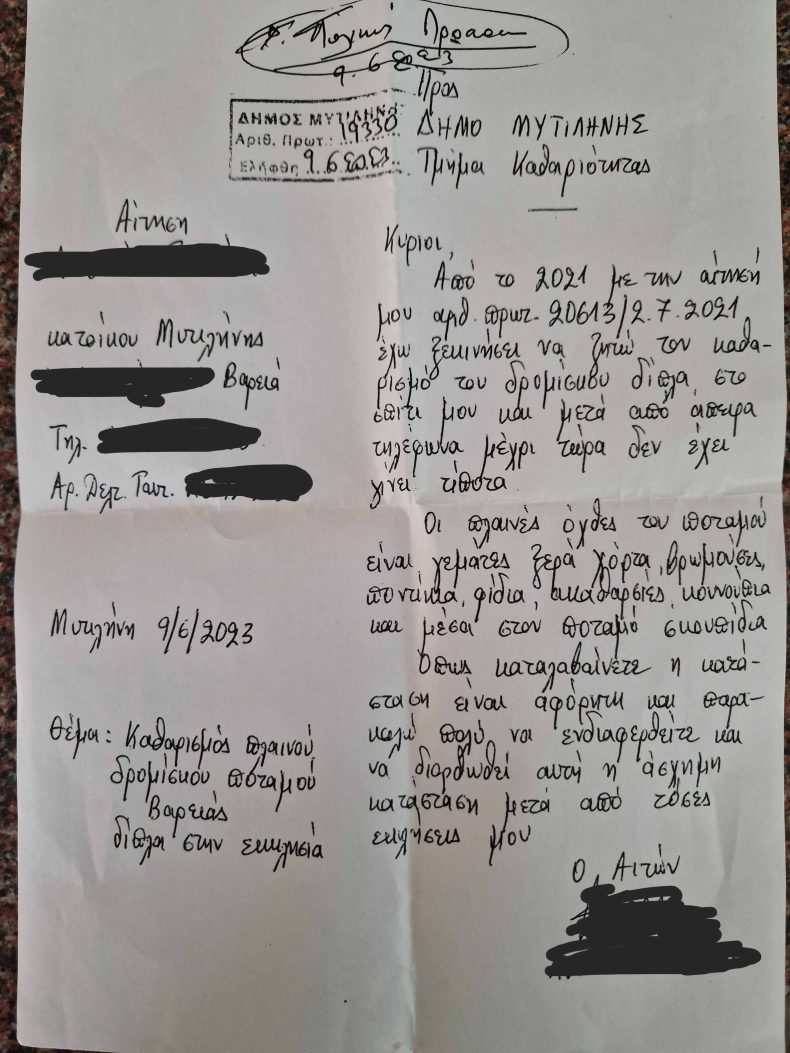 9.6.2023
ΔΗΜΟΣ ΜΥΤΙΛΗΝΗΣ
Αριθ. Πρωτ.: 19330
Ελήφθη 9.6.2023
Προς
ΔΗΜΟ ΜΥΤΙΛΗΝΗΣ
Τμήμα Καθαριότητας
Αίτηση
κατοίκου Μυτιλήνης
Βαρειά
Τηλ.
Αρ. Δελτ. Ταυτ.
Μυτιλήνη 9/6/2023
Θέμα: Καθαρισμός πλαινού
δρομίσκου ποταμού
Βαρειάς
δίπλα στην εκκλησιά
Κύριοι,
Από το 2021 με την αίτησή
μου αριθ. πρωτ. 20613/2.7.2021
έχω ξεκινήσει να ζητώ τον καθα-
ρισμό του δρομίσκου δίπλα στο
σπίτι μου και μετά από άπειρα
τηλέφωνα μέχρι τώρα δεν έχει
γίνει τίποτα.
Οι πλαινές όχθες του ποταμού
είναι γεμάτες ξερά χόρτα, βρωμούσες,
ποντίκια, φίδια, ακαθαρσίες, κουνούπια
και μέσα στον ποταμό σκουπίδια
Όπως καταλαβαίνετε η κατά-
σταση είναι αφόρητη και παρα-
καλώ πολύ να ενδιαφερθείτε και
να διορθωθεί αυτή η άσχημη
κατάσταση μετά από τόσες
εκκλήσεις μου
Ο Αιτών